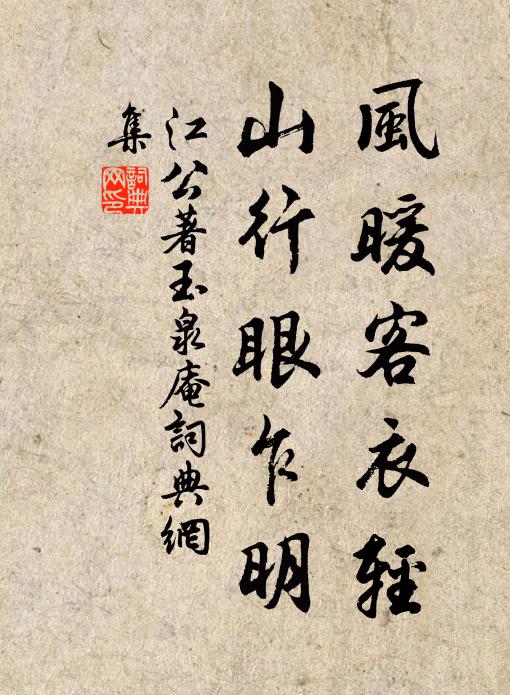 風暖客衣輕
山行眼乍明
江公著玉泉庵詞典網
集
詞典
网印